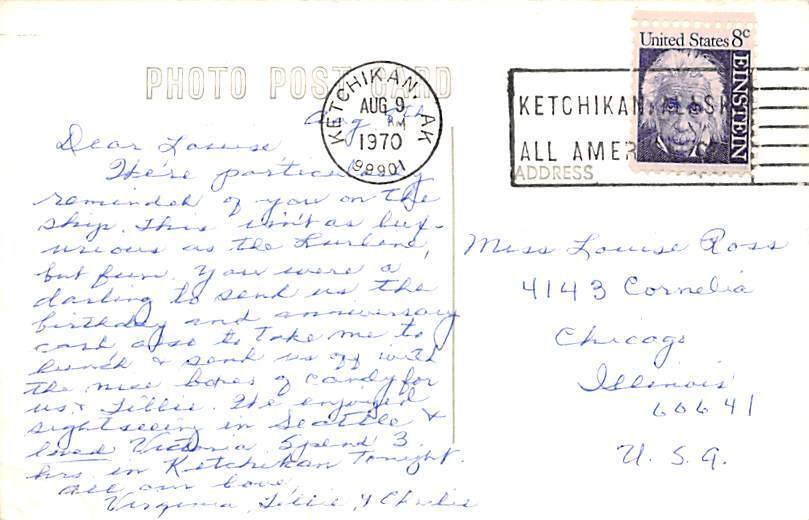 PHOTO POST CARD
KETCHIKAN, AK
AUG 9
PM
1970
99901
United States 8c
EINSTEIN
KETCHIKAN, ALASK
ALL AMER
ADDRESS
Aug 9th
Dear Louise
We're particularly
reminded of you on the
ship. This isn't as lux-
urious as the Lurline,
but fun. You were a
darling to send us the
birthday and anniversary
card also to take me to
lunch & send us off with
the nice boxes of candy for
us & Tillie. We enjoyed
sightseeing in Seattle &
loved Victoria. Spend 3
hrs. in Ketchikan tonight.
All our love,
Virginia, Tillie & Charlie
Miss Louise Ross
4143 Cornelia
Chicago
Illinois
60641
U. S. A.